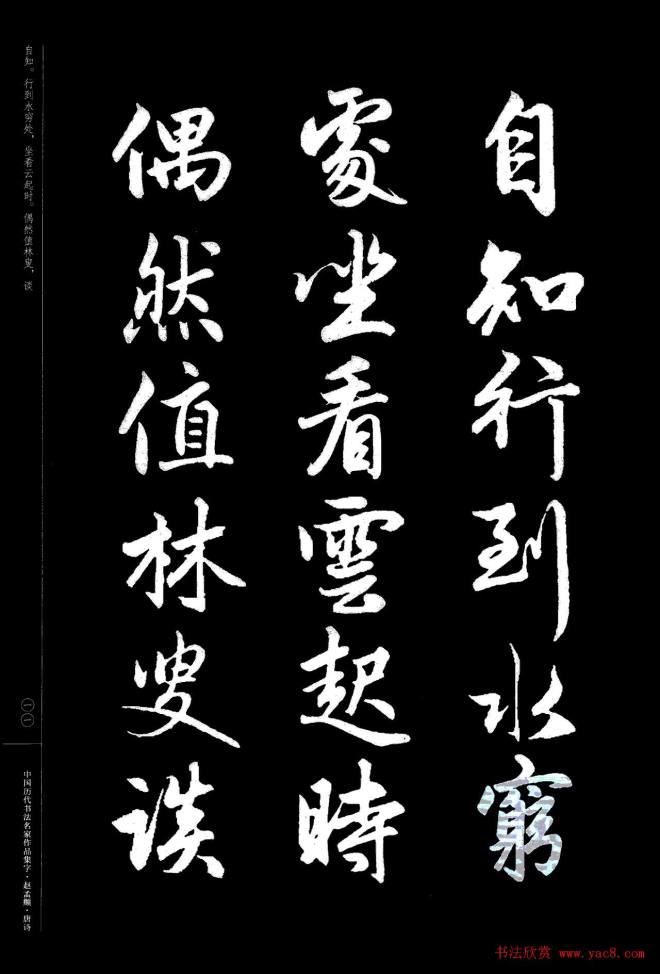 自知行到水窮
處坐看雲起時
偶然值林叟談
自知。行到水穷处，坐看云起时。偶然值林叟，谈
一一
中国历代书法名家作品集字·赵孟頫·唐诗
书法欣赏 www.yac8.com